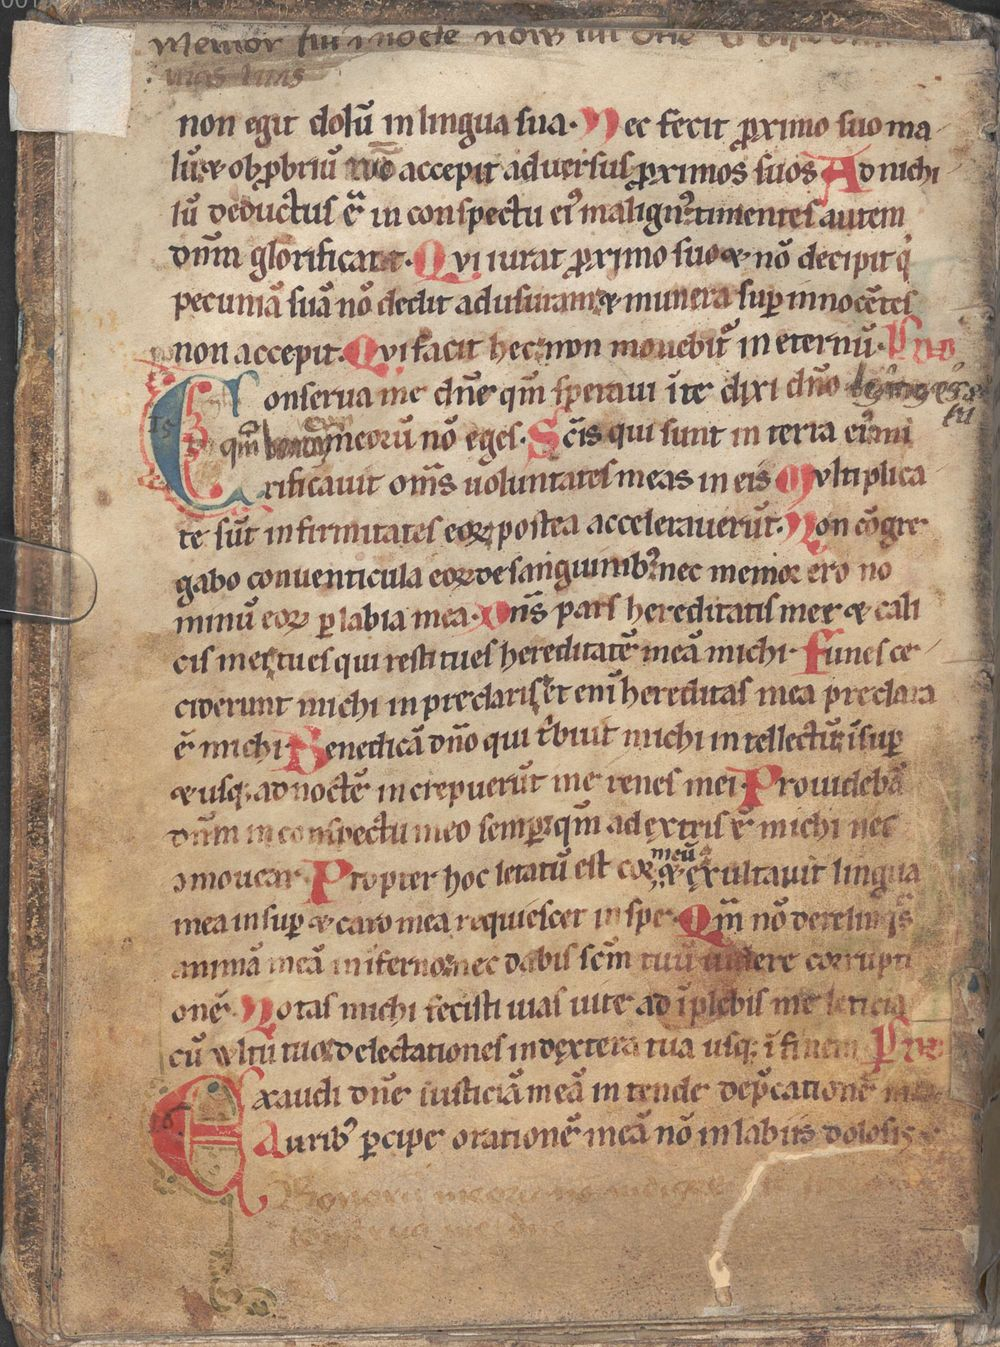 Memor fui nocte nois tui dne
vias tuas
non egit dolū in lingua sua. Nec fecit ꝓximo suo ma
lū: ⁊ obꝓbriū nō accepit adversus ꝓximos suos Ad nichi
lū deductus ē in conspectu ei᷒ malign᷒: timentes autem
dnm̄ glorificat. Qvi iurat ꝓximo suo ⁊ nō decipit q
pecuniā suā nō dedit ad usuram: ⁊ munera suꝑ innocētes
non accepit. Qvi facit hec: non movebit᷑ in eternū. Ps dd
Conserva me dn̄e qm̄ speravi ī te dixi dn̄o
15 qm̄ bonorū meorū nō eges. Sc̄is qui sunt in terra ei᷒: mi
rificavit om̄s voluntates meas in eis Mvltiplica
te sūt infirmitates eoꝝ postea acceleraverūt. Non cōgre
gabo conventicula eoꝝ de sanguinib᷒: nec memor ero no
minū eoꝝ ꝑ labia mea. Dn̄s pars hereditatis mee ⁊ cali
cis mei: tu es qui restitues hereditatē meā michi. Funes ce
ciderunt michi in preclaris: et eni hereditas mea preclara
ē michi. Benedicā dn̄o qui t̓buit michi intellectū: īsuꝑ
⁊ usq; ad noctē increpuerūt me renes mei. Providebā
dnm̄ in conspectu meo semꝑ: qm̄ a dextris ē michi nec
omovear. Propter hoc letatū est cor meū ⁊ exultavit lingua
mea insuꝑ ⁊ caro mea requiescet in spe. Qm̄ nō derelinqs
animā meā in iferno: nec dabis scm̄ tuū videre corrupti
onē. Notas michi fecisti vias vite ad īplebis me leticia
cū vultu tuo: delectationes in dextera tua usq; ī finem Ps dd
Exaudi dn̄e iusticiā meā intende dep̄cationē meā
16 Aurib᷒ ꝑcipe orationē meā nō in labiis dolosis
Bonorū meorū nō
conserva me dne